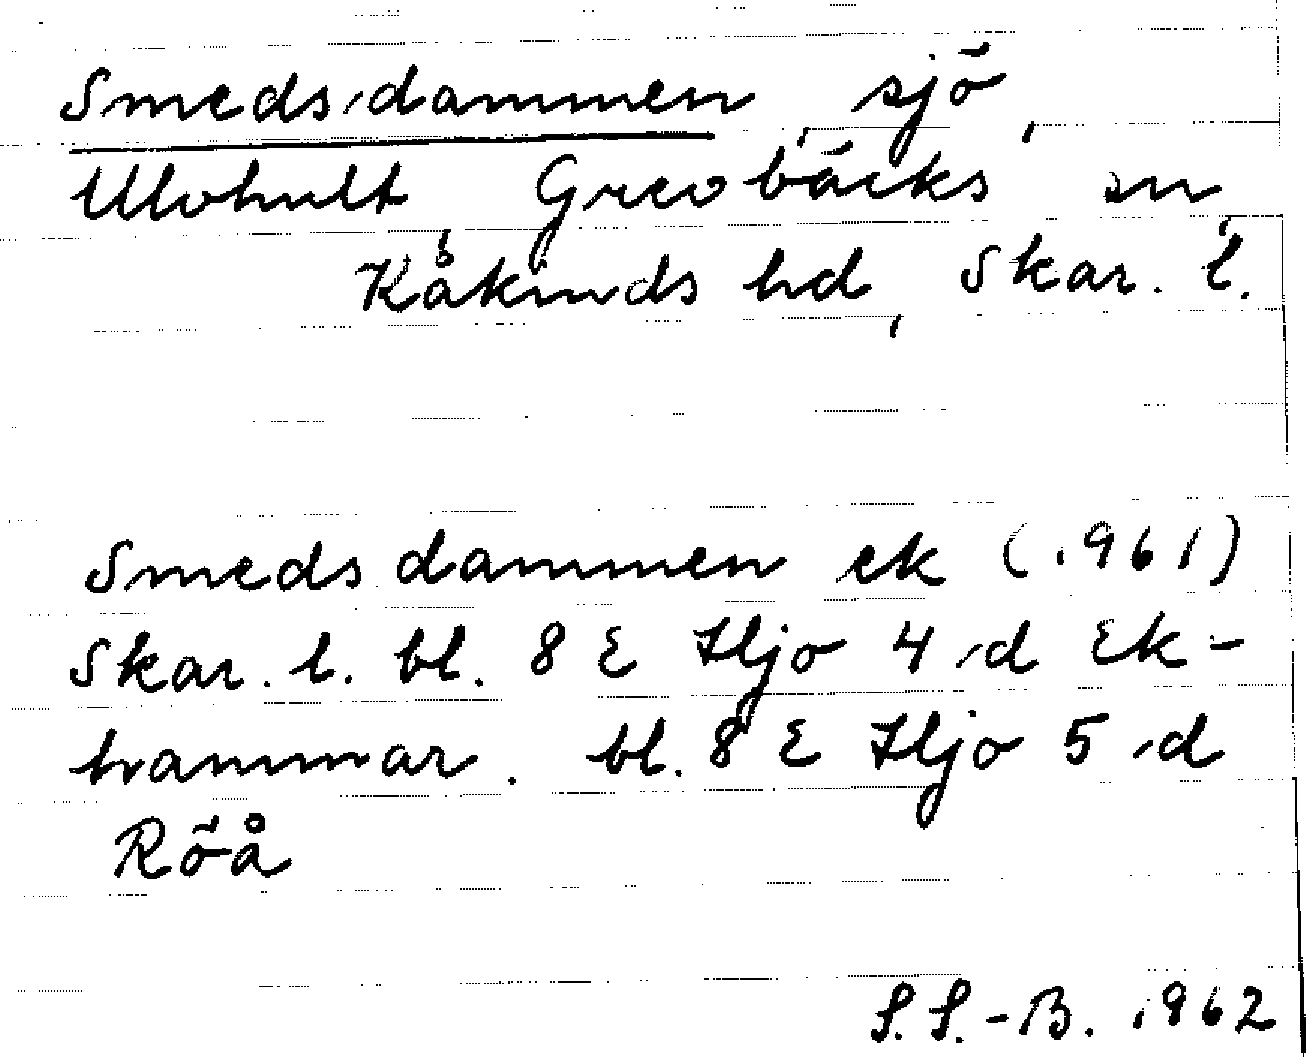 Smedsdammen, sjö,
Ulvhult, Grevbäcks sn,
Kåkinds hd, Skar. l.
Smedsdammen ek (1961)
Skar. l. bl. 8 E Hjo 4 d Ek-
hammar. bl. 8 E Hjo 5 d
Röå
S. S.-B. 1962